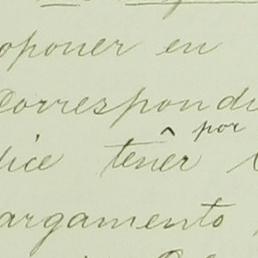 oponer en
Correspond
por
dice tener
argamento